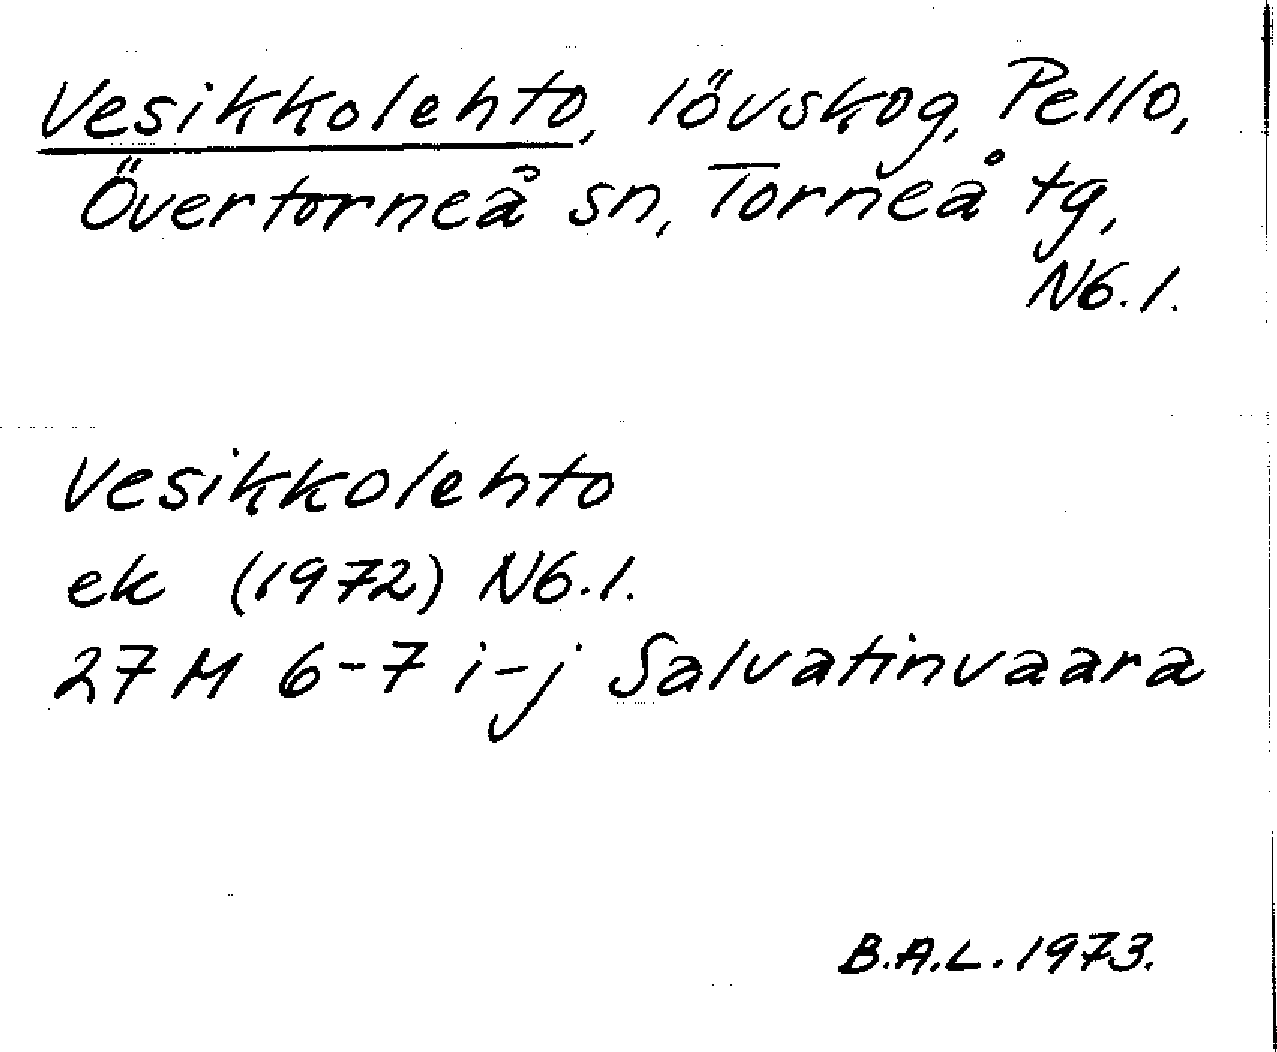 Vesikkolehto, lövskog, Pello,
Övertorneå sn, Torneå tg,
N6.1.
Vesikkolehto
ek (1972) N6.1.
27 M 6-7 i-j Salvatinvaara
B.A.L. 1973.